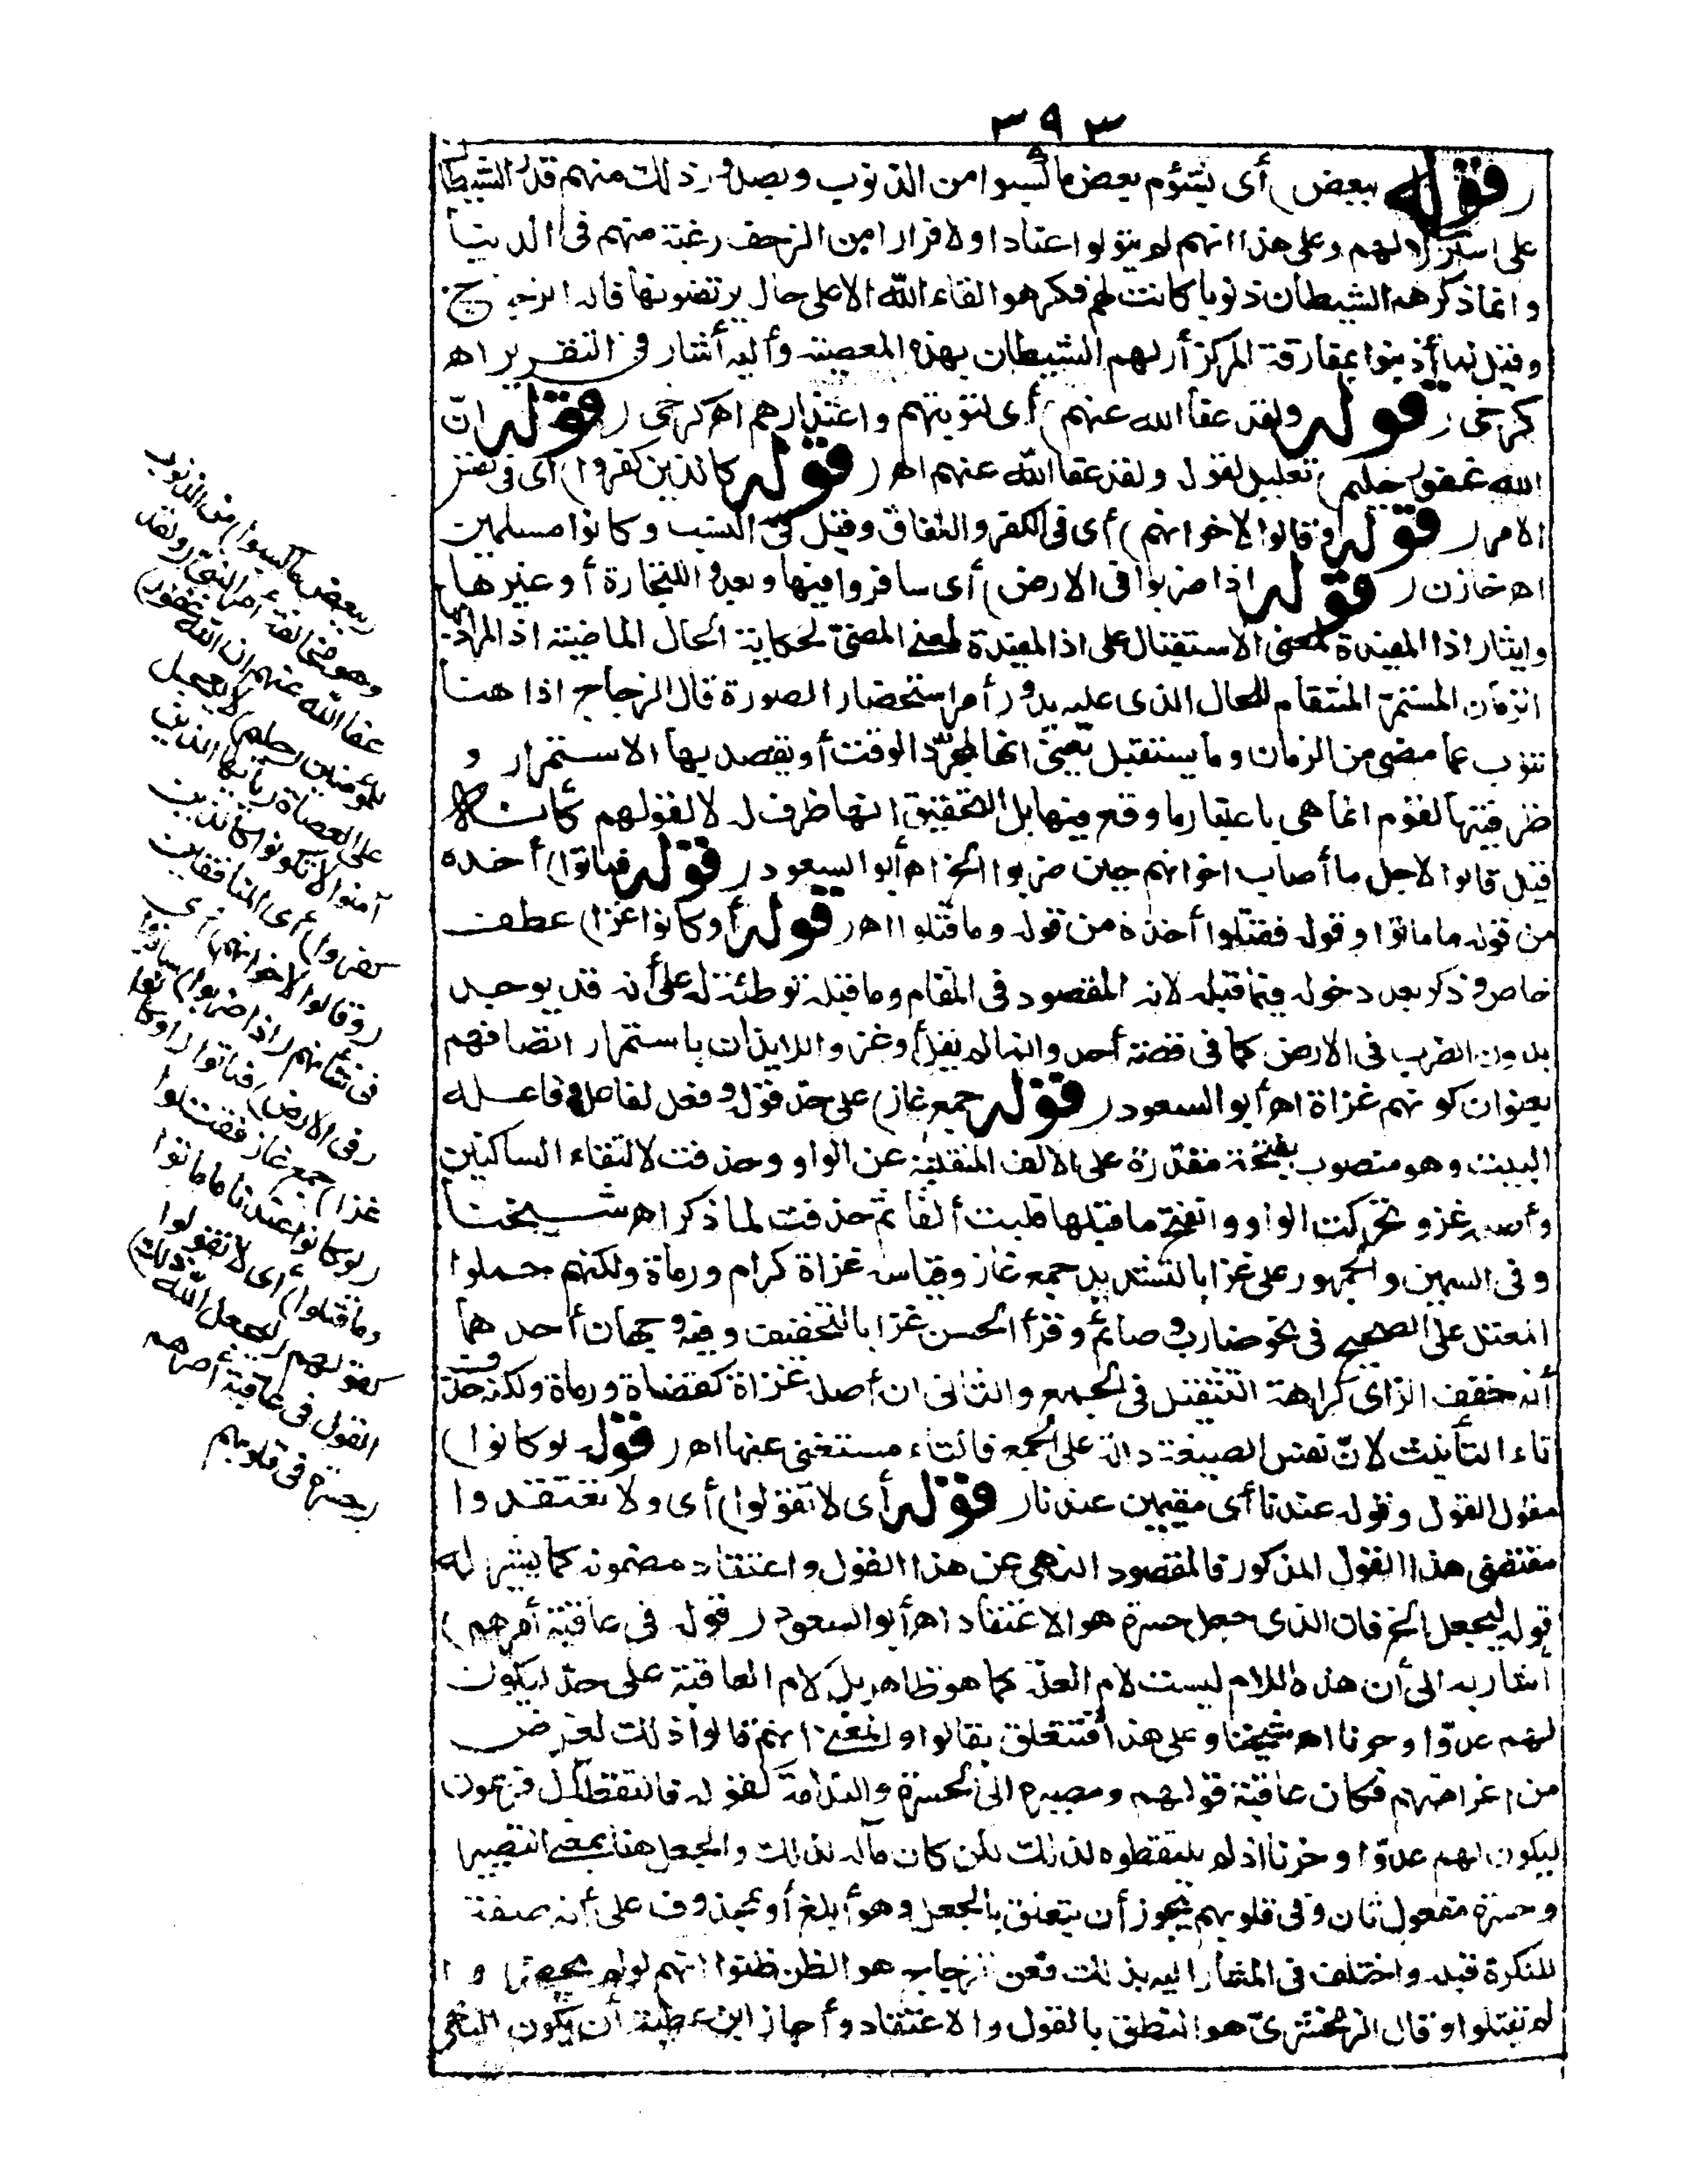 ٣٩٣
(قوله ببعض) أى بشؤم بعض ما كسبوا من الذنوب وبصدور ذلك منهم قدر الشيطان
على استزلالهم وعلى هذا انهم لم يتولوا عنادا ولا فرارا من الزحف رغبة منهم فى الدنيا
وانما ذكرهم الشيطان ذنوبا كانت لهم فكرهوا لقاء الله الا على حال يرتضونها قاله الزجاج
وقيل لما أذنبوا بمفارقة المركز أزلهم الشيطان بهذه المعصية وأليه أشار فى التقرير اه
كرخى (قوله ولقد عفا الله عنهم) أى لتوبتهم واعتذارهم اه كرخى (قوله انّ
الله غفور حليم) تعليل لقوله ولقد عفا الله عنهم اه (قوله كالذين كفروا) أى فى نفس
الامر (قوله وقالوا لاخوانهم) أى فى الكفر والنفاق وقيل فى النسب وكانوا مسلمين
اه خازن (قوله اذا ضربوا فى الارض) أى سافروا فيها وبعدوا للتجارة أو غيرها
وايثار اذا المفيدة لمعنى الاستقبال على اذ المفيدة لمعنى المضىّ لحكاية الحال الماضية اذ المراد بها
الزمان المستمرّ المنتظم للحال الذى عليه يدور أمر استحضار الصورة قال الزجاج اذا هنا
تنوب عما مضى من الزمان وما يستقبل يعنى انها لمجرّد الوقت أو يقصد بها الاستمرار و
ظرفيتها لقولهم انما هى باعتبار ما وقع فيها بل التحقيق انها ظرف له لا لقولهم كأنه
قيل قالوا لاجل ما أصاب اخوانهم حين ضربوا الخ اه أبو السعود (قوله فماتوا) أخذه
من قوله ما ماتوا وقوله فقتلوا أخذه من قوله وما قتلوا اه (قوله أو كانوا غزا) عطف
خاص وذكر بعد دخوله فيما قبله لانه المقصود فى المقام وما قبله توطئة له على أنه قد يوجد
بدون الضرب فى الارض كما فى قصة أحد وانما لم يقل أو غزوا للايذان باستمرار اتصافهم
بعنوان كونهم غزاة اه أبو السعود (قوله جمع غاز) على حدّ قوله وفعل لفاعل وفاعله
البيت وهو منصوب بفتحة مقدّرة على الالف المنقلبة عن الواو وحذفت لالتقاء الساكنين
وأصله غزو تحركت الواو وانفتح ما قبلها قلبت ألفا ثم حذفت لما ذكر اه شيخنا
وفى السمين والجمهور على غزا بالتشديد جمع غاز وقياسه غزاة كرام ورماة ولكنهم حملوا
المعتل على الصحيح فى نحو ضارب وصائم وقرأ الحسن غزا بالتخفيف وفيه وجهان أحدهما
أنه خفف الزاى كراهة التثقيل فى الجمع والثانى ان أصله غزاة كقضاة ورماة ولكنه حذفت
تاء التأنيث لانّ نفس الصيغة دالة على الجمع فالتاء مستغنى عنها اه (قوله لو كانوا)
مقول القول وقوله عندنا أى مقيمين عندنا (قوله أى لا تقولوا) أى ولا تعتقدوا
مقتضى هذا القول المذكور فالمقصود النهى عن هذا القول واعتقاد مضمونه كما يشير له
قوله ليجعل الخ فان الذى جعل حسرة هو الاعتقاد اه أبو السعود (قوله فى عاقبة أمرهم)
أشار به الى أن هذه اللام ليست لام العلة كما هو ظاهر بل لام العاقبة على حدّ ليكون
لهم عدوّا وحزنا اه شيخنا وعلى هذا فتتعلق بقالوا والمعنى انهم قالوا ذلك لغرض
من اغراضهم فكان عاقبة قولهم ومصيره الى الحسرة والندامة كقوله فالتقطه آل فرعون
ليكون لهم عدوّا وحزنا اذ لم يلتقطوه لذلك لكن كان مآله لذلك والجعل هنا بمعنى التصيير
وحسرة مفعول ثان وفى قلوبهم يجوز أن يتعلق بالجعل وهو أبلغ أو بمحذوف على أنه صفة
للنكرة قبله واختلف فى المشار اليه بذلك فعن الزجاج هو الظن ظنوا انهم لو لم يحضروا
لم تقتلوا وقال الزمخشرىّ هو النطق بالقول والاعتقاد وأجاز ابن عطية أن يكون النهى
(ببعض ما كسبوا) من الذنوب
وهو مخالفة أمر النبىّ (ولقد
عفا الله عنهم ان الله غفور)
للمؤمنين (حليم) لا يعجل
على العصاة (يأيها الذين
آمنوا لا تكونوا كالذين
كفروا) أى المنافقين
(وقالوا لاخوانهم) أى
فى شأنهم (اذا ضربوا) سافروا
(فى الارض) فماتوا (أو كانوا
غزا) جمع غاز فقتلوا
(لو كانوا عندنا ما ماتوا
وما قتلوا) أى لا تقولوا
كقولهم (ليجعل الله ذلك)
القول فى عاقبة أمرهم
(حسرة فى قلوبهم